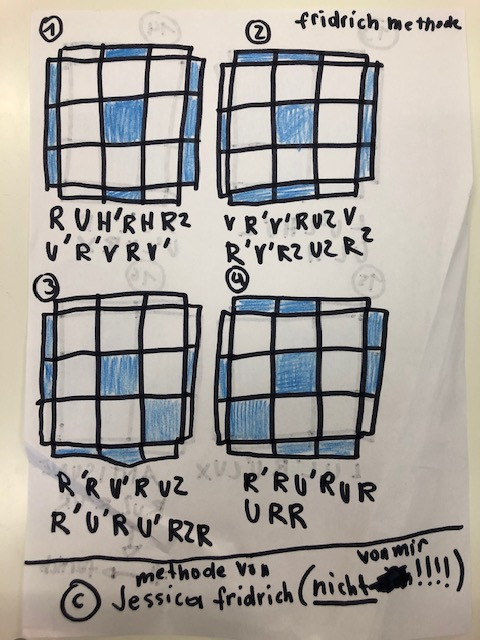 ① ② fridrich methode
R U H'R H R2
U'R'V R V'
V R'V'R U2 V
R'V'R2 U2 R2
③ ④
R'R U'R U2
R'U'R U'R2R
R'R U'R U R
U R R
methode von von mir
© Jessica fridrich (nicht !!!!)